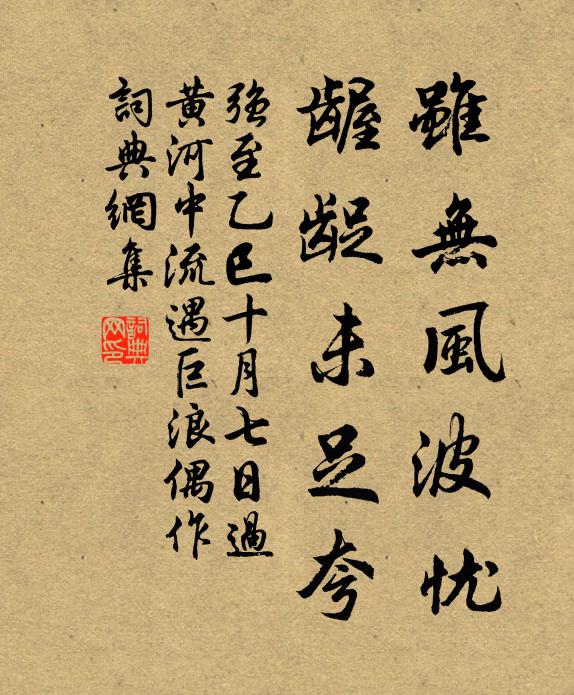 雖無風波忧
齷齪未足夸
強至乙巳十月七日過
黄河中流遇巨浪偶作
詞典網集
詞典
网印